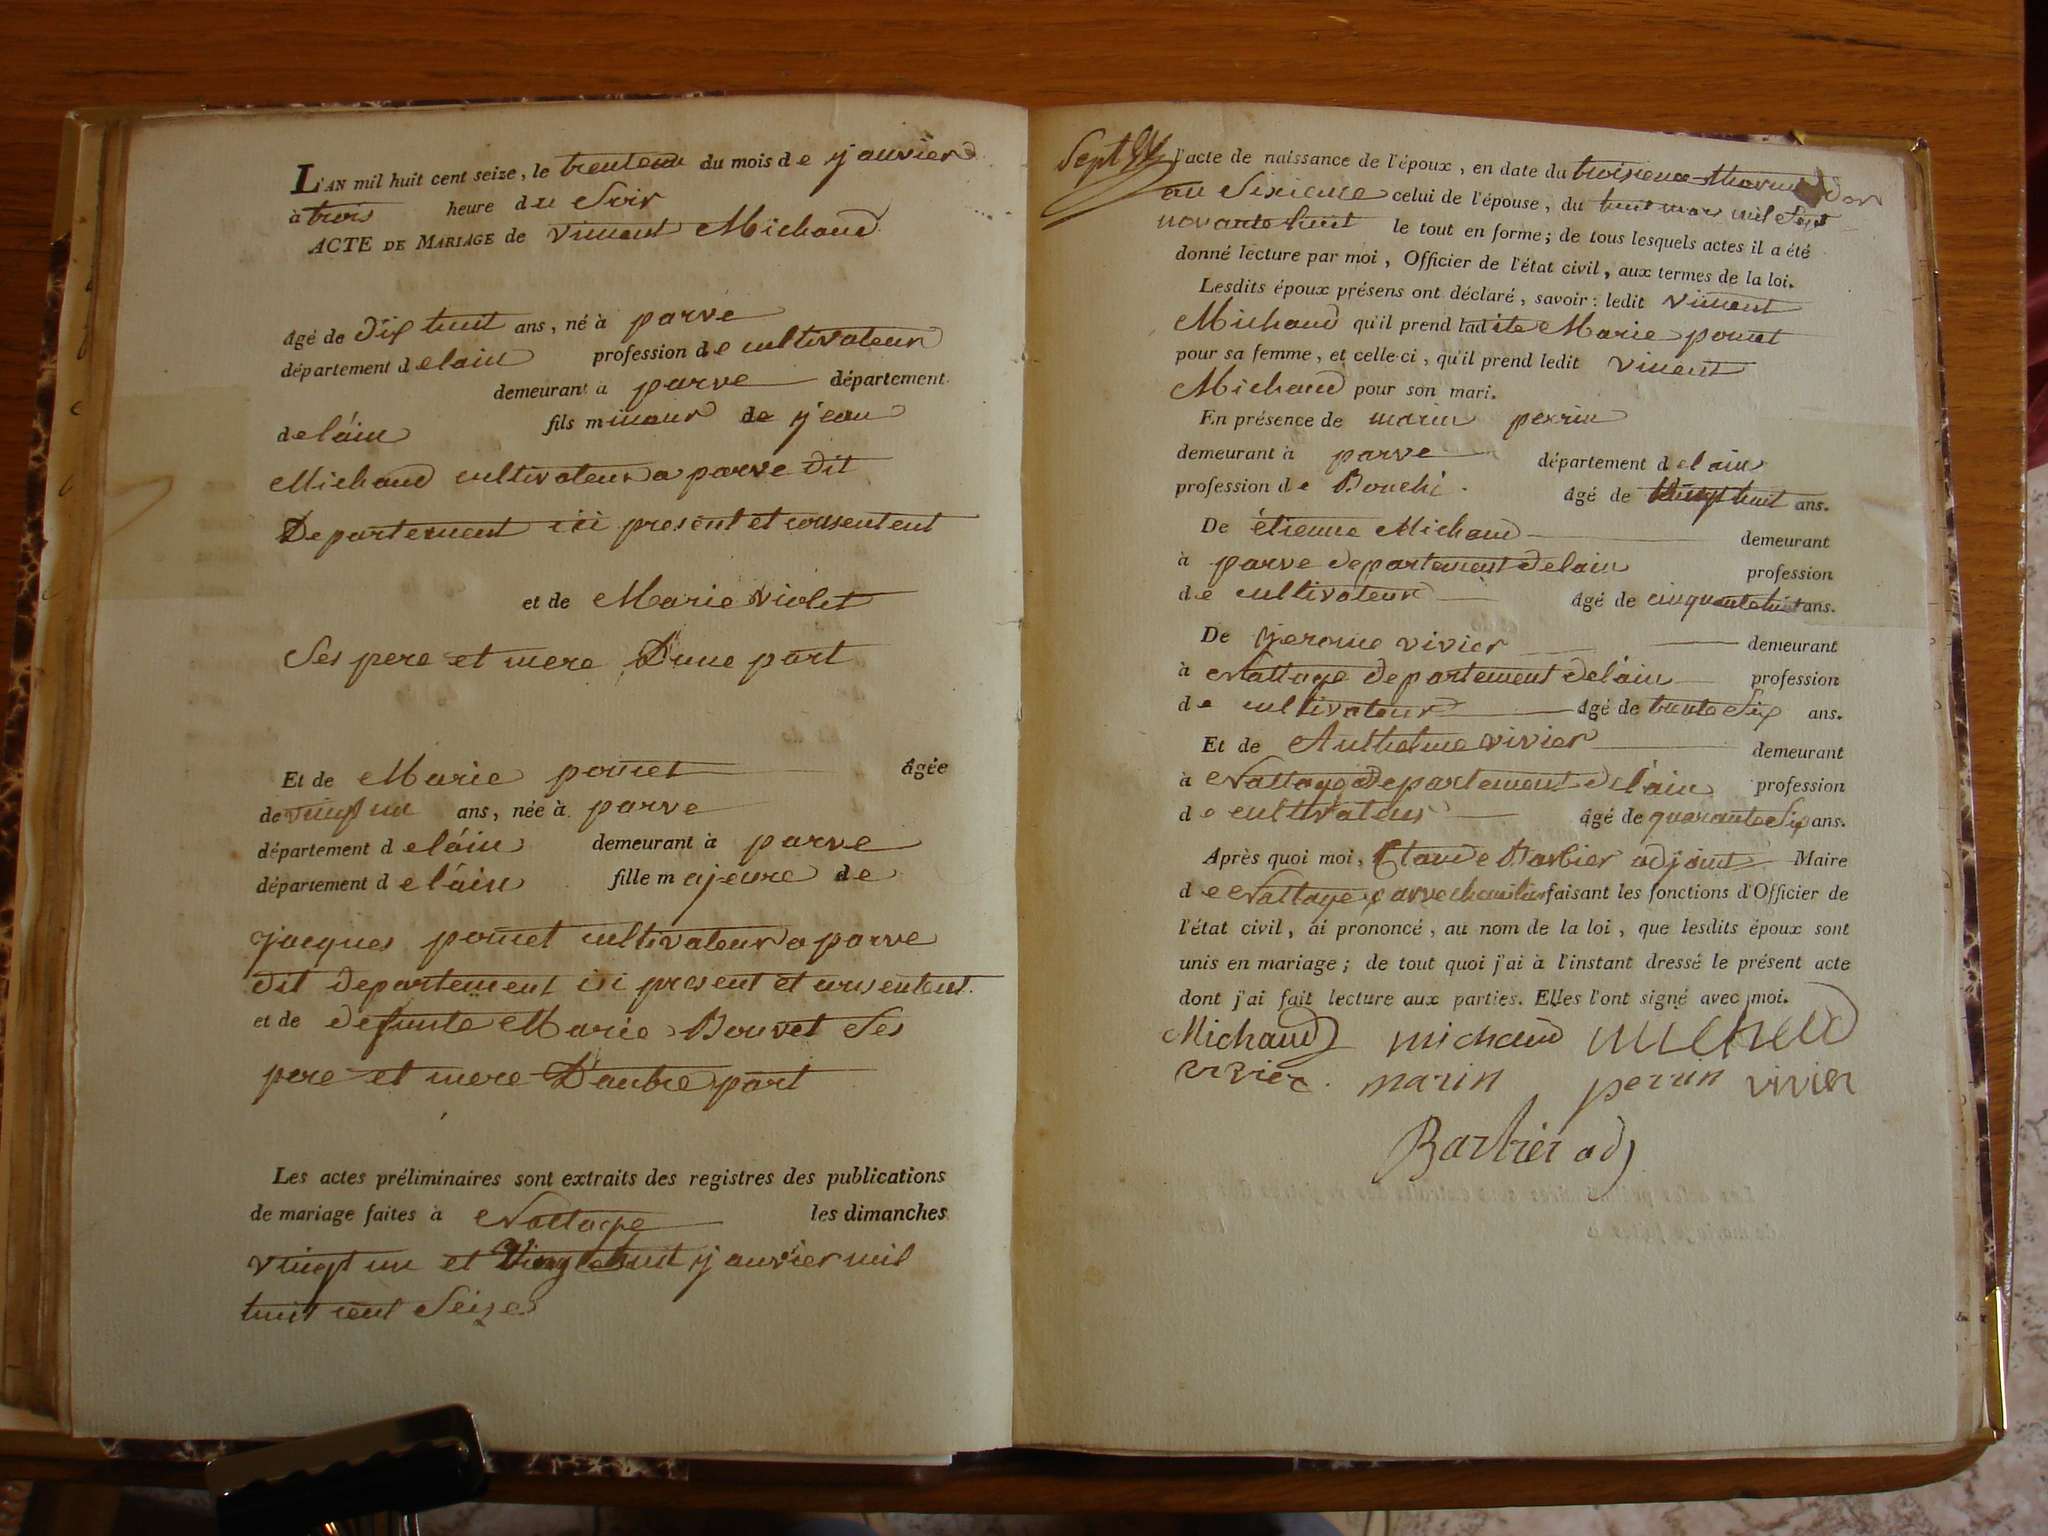 L'AN mil huit cent seize, le trenteun du mois de janvier
à trois heure du Soir
ACTE DE MARIAGE de vincent Michaud
âgé de dix huit ans, né à parve
département delain profession de cultivateur
demeurant à parve département
delain fils mineur de jean
Michaud cultivateur a parve dit
Departement ici present et consentent
et de Marie violet
Ses pere et mere D'une part
Et de Marie poncet âgée
de vingt un ans, née à parve
département delain demeurant à parve
département delain fille majeure de
jacques poncet cultivateur a parve
dit departement ici present et consentent
et de defunte Marie Bouvet Ses
pere et mere D'autre part
Les actes préliminaires sont extraits des registres des publications
de mariage faites à Nattage les dimanches
vingt un et Vingt huit janvier mil
huit cent Seize
l'acte de naissance de l'époux, en date du troisieme thermidor
an Sixieme celui de l'épouse, du huit mars mil Sept
novante huit le tout en forme; de tous lesquels actes il a été
donné lecture par moi, Officier de l'état civil, aux termes de la loi.
Lesdits époux présens ont déclaré, savoir: ledit vincent
Michaud qu'il prend ladite Marie poncet
pour sa femme, et celle-ci, qu'il prend ledit vincent
Michaud pour son mari.
En présence de marin perrin
demeurant à parve département delain
profession de âgé de vingt huit ans.
De étienne Michaud demeurant
à parve departement delain profession
de cultivateur âgé de cinquante huit ans.
De jerome vivier demeurant
à Nattage departement delain profession
de cultivateur âgé de trente Six ans.
Et de Anthelme vivier demeurant
à Nattage departement delain profession
de cultivateur âgé de quarante Six ans.
Après quoi moi, Claude Barbier adjoint Maire
de Nattage parve faisant les fonctions d'Officier de
l'état civil, ai prononcé, au nom de la loi, que lesdits époux sont
unis en mariage; de tout quoi j'ai à l'instant dressé le présent acte
dont j'ai fait lecture aux parties. Elles l'ont signé avec moi.
Michaud michaud michaud
vivier marin perrin vivier
Barbier adj